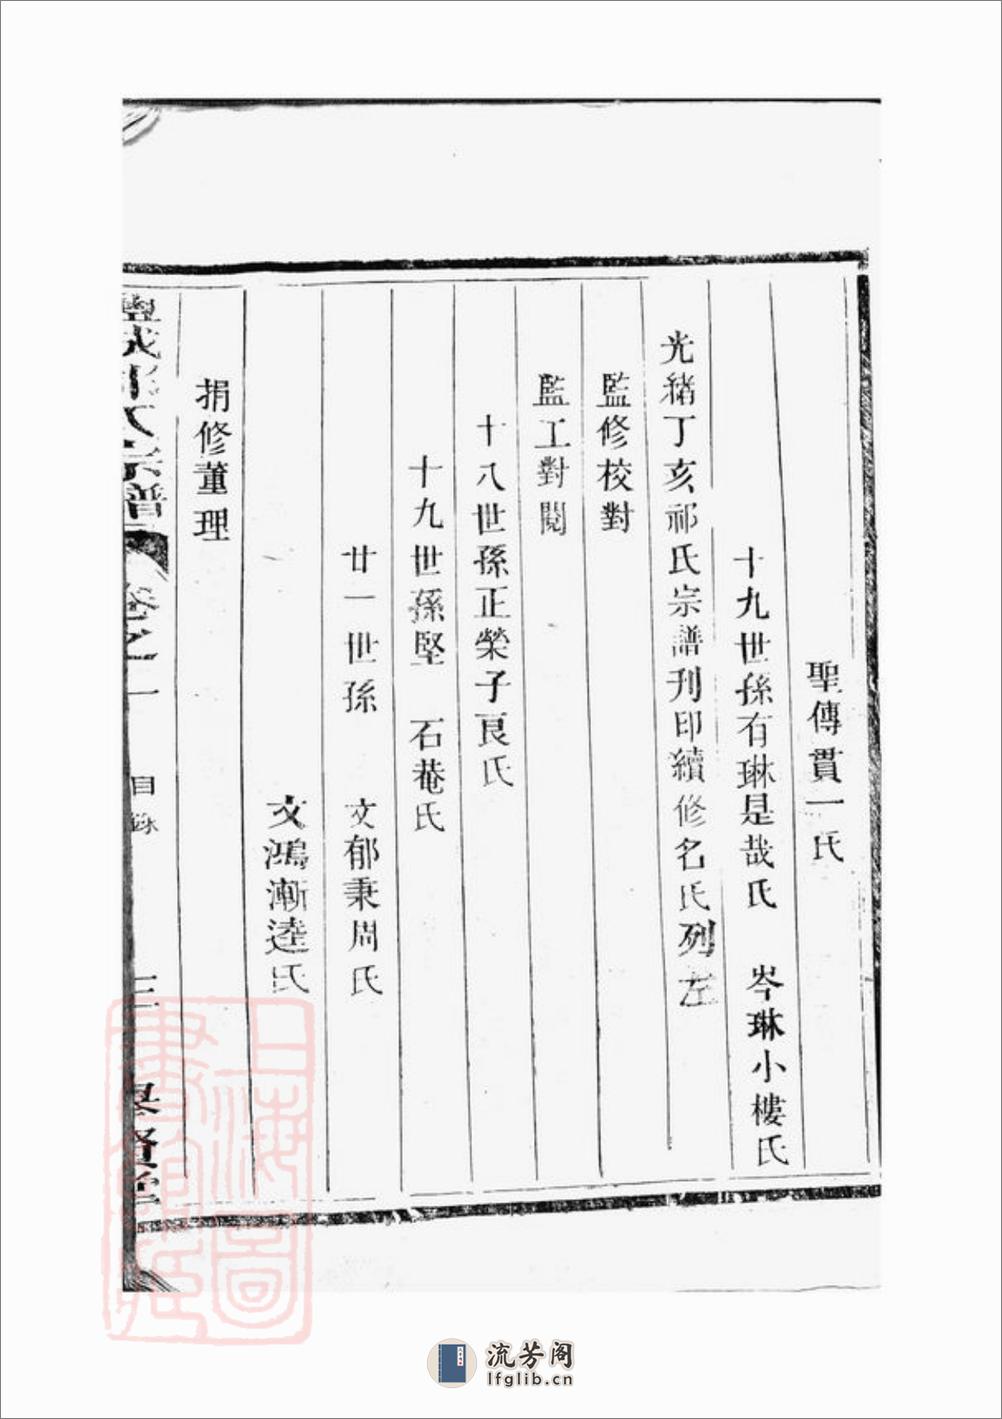 聖傳貫一氏
十九世孫有琳是哉氏　岑琳小樓氏
光緒丁亥祁氏宗譜刋印續修名氏列左
監修校對
監工對閱
十八世孫正榮子良氏
十九世孫堅　石菴氏
廿一世孫　文郁秉周氏
文鴻漸逵氏
捐修董理
氏宗譜 卷之一 目錄 三 賢堂
上海圖書館藏
流芳阁
lfglib.cn